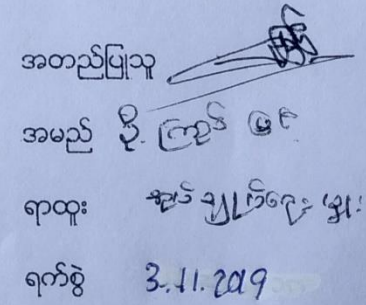 အတည်ပြုသူ
အမည် ဦး ကြာင်
ရာထူး အုပ်ချုပ်ရေးမှူး
ရက်စွဲ 3.11.2019